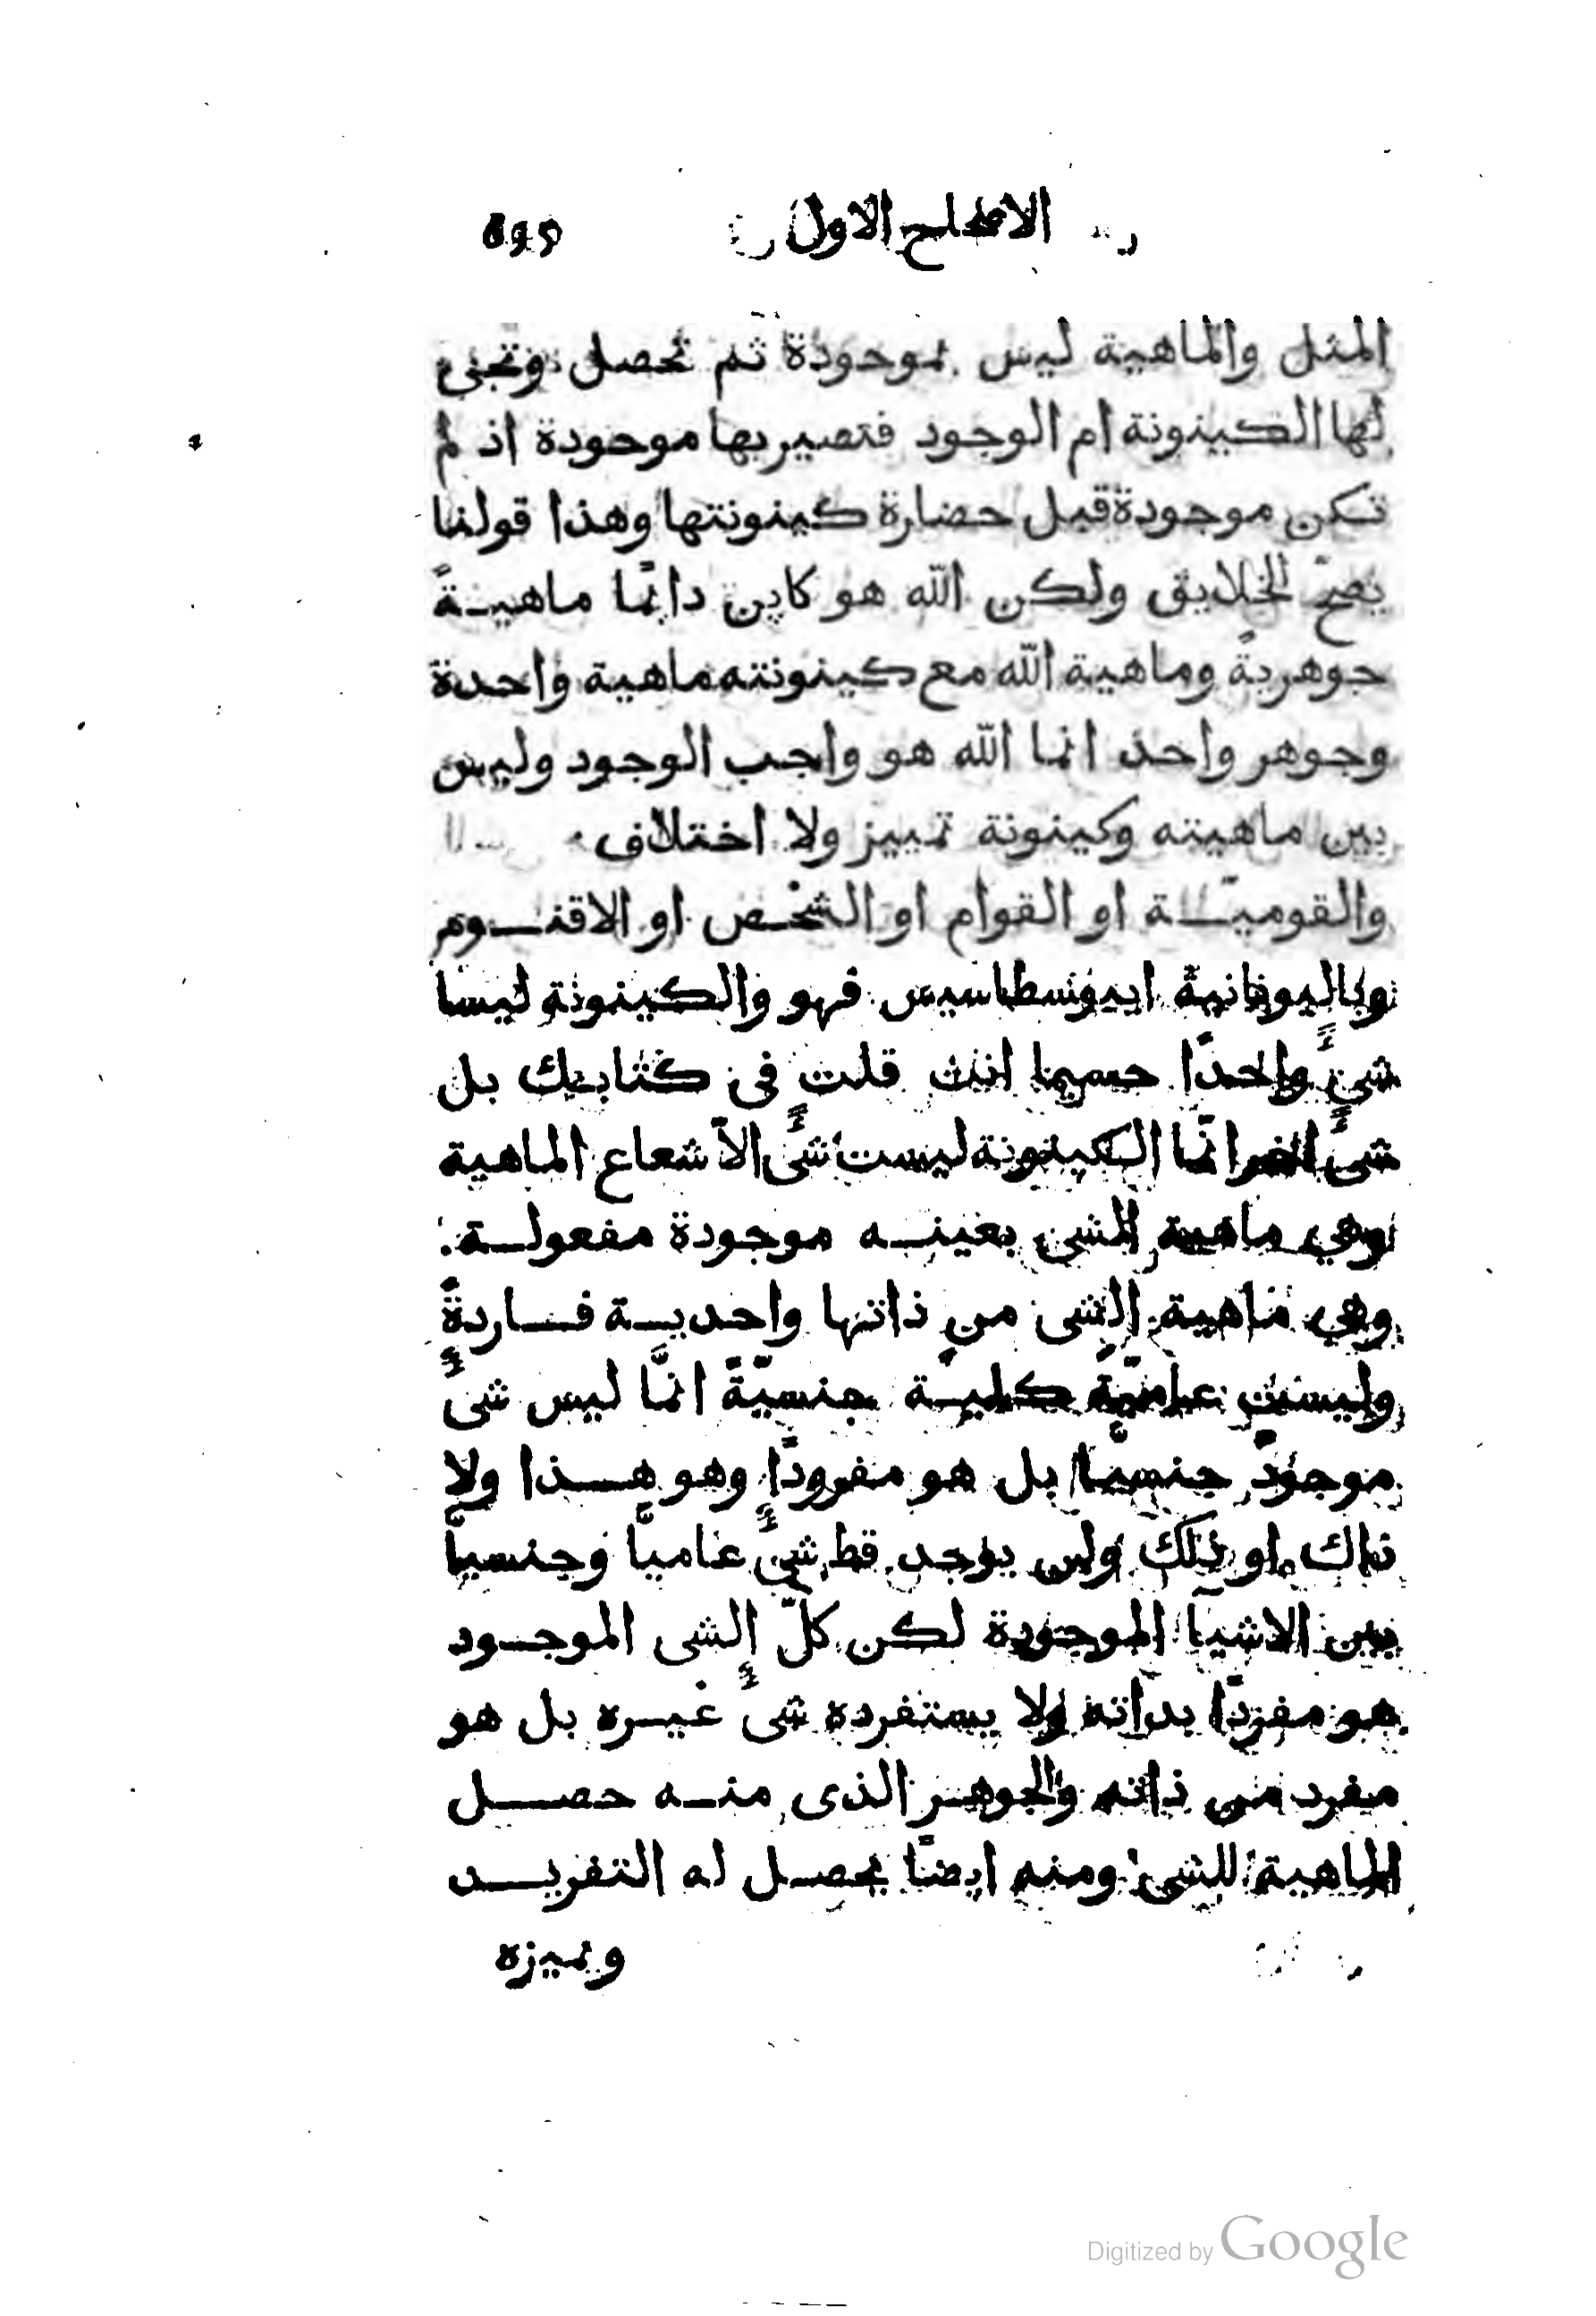 الاصطلاح الاول
المثل والماهية ليس بموجودة ثم تحصل وتجى
لها الكينونة ام الوجود فتصير بها موجودة اذ لم
تكن موجودة قبل حضارة كينونتها وهذا قولنا
يصحّ لخلايق ولكن الله هو كاين دايمًا ماهيـةً
جوهريةً وماهية الله مع كينونته ماهية واحدة
وجوهر واحد انما الله هو واجب الوجود وليس
بين ماهيته وكينونة تمييز ولا اختلاف
والقوميّـة او القوام او الشخص او الاقنـوم
وباليونانية ايبوسطاسيس فهو والكينونة ليسا
شىٍٔ واحدًا حسبما انت قلت فى كتابك بل
شىٍٔ اخر انّما الكينونة ليست شىٍٔ الاّ شعاع الماهية
وهي ماهية الشى بعينـه موجودة مفعولـة
وهي ماهية الشى من ذاتها واحديـة فـاردةً
وليست عاميّة كليـة جنسيّةً انمَّا ليس شىٍٔ
موجودٌ جنسيًّا بل هو مفرودًا وهو هـذا ولا
ذاك او ذلك ولس يوجد قط شىٍٔ عامياً وجنسياً
بين الاشيآ الموجودة لكن كلّ الشى الموجـود
هو مفردًا بذاته ولا يستفرده شىٍٔ غيـره بل هو
مفرد من ذاته والجوهـر الذى منـه حصـل
الماهية للشى ومنه ايضًا يحصـل له التفريـد
وتميزه
Digitized by Google